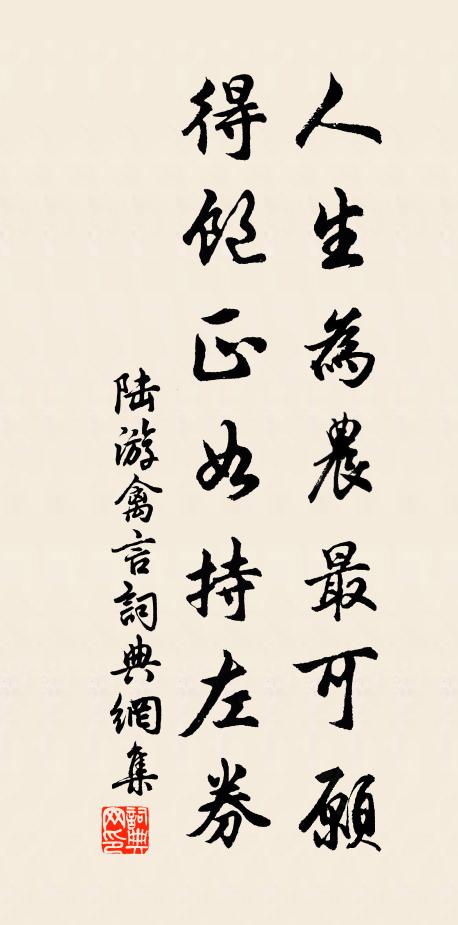 人生為農最可願
得飽正如持左券
陆游禽言詞典網集
詞典网印